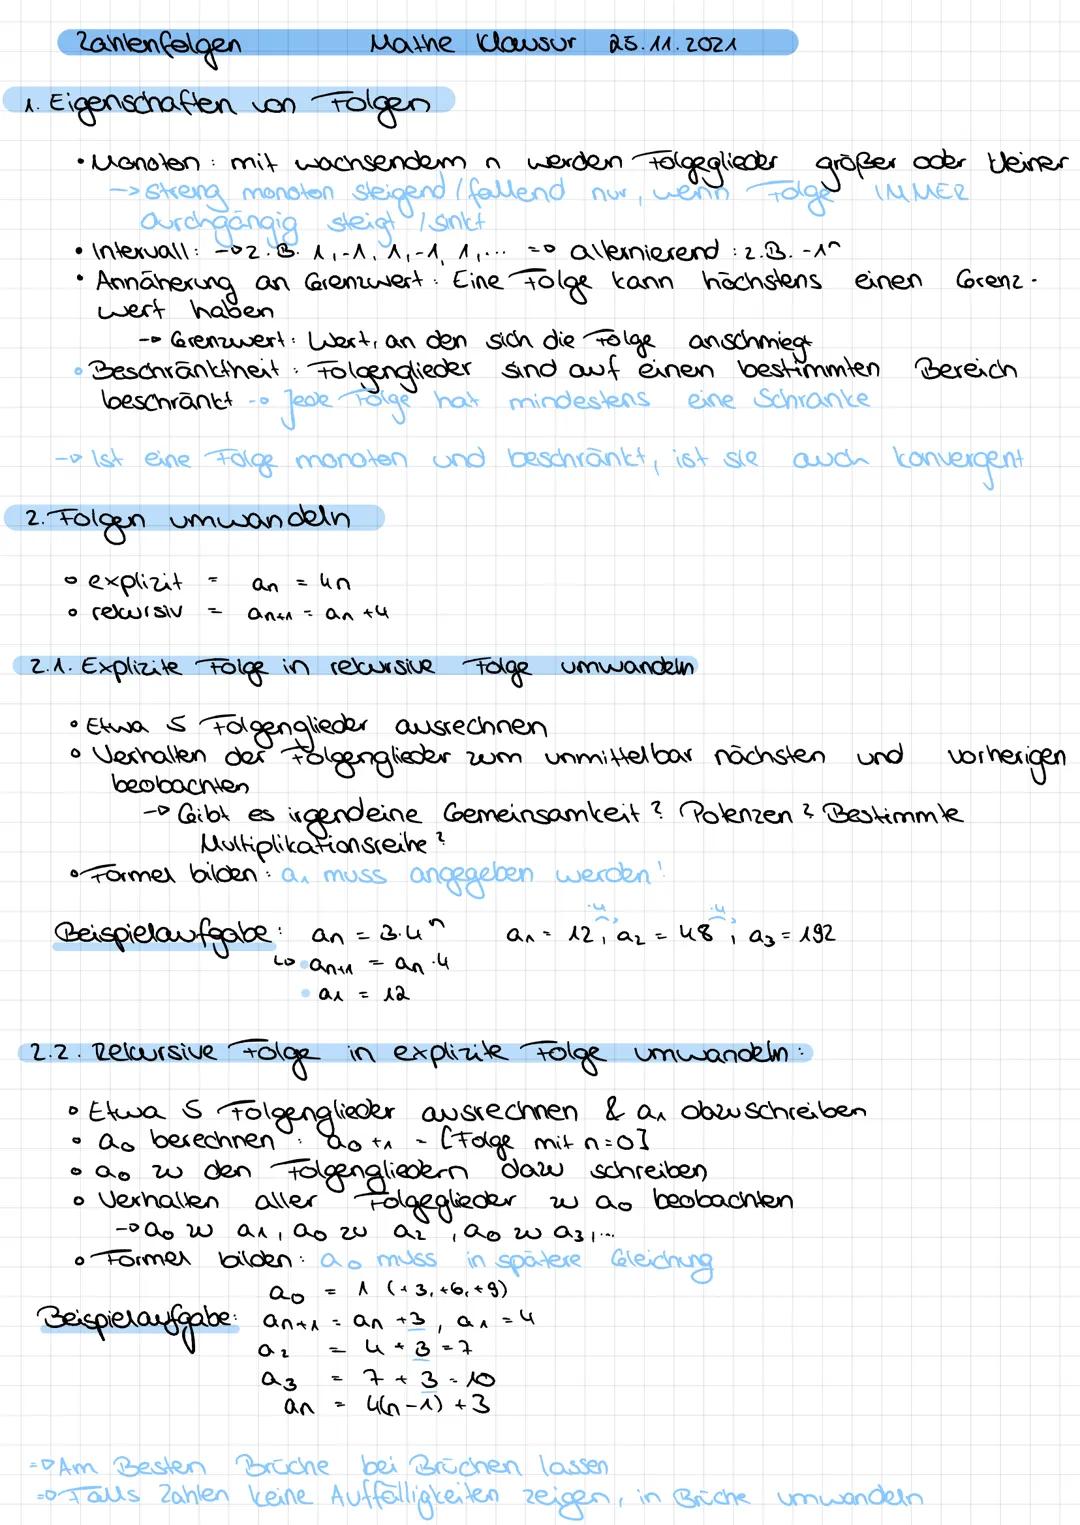 Zahlenfolgen Mathe Klausur 25.11.2021
1. Eigenschaften von Folgen
• Monoton : mit wachsendem n werden Folgeglieder größer oder kleiner
-> streng monoton steigend / fallend nur, wenn Folge IMMER
durchgängig steigt / sinkt
• Intervall : -> z.B. 1,-1, 1,-1, 1,... => alternierend : z.B. -1ⁿ
• Annäherung an Grenzwert : Eine Folge kann höchstens einen Grenz-
wert haben
-> Grenzwert : Wert, an den sich die Folge anschmiegt
• Beschränktheit : Folgenglieder sind auf einen bestimmten Bereich
beschränkt -> Jede Folge hat mindestens eine Schranke
-> Ist eine Folge monoton und beschränkt, ist sie auch konvergent
2. Folgen umwandeln
• explizit = an = 4n
• rekursiv = an+1 = an +4
2.1. Explizite Folge in rekursive Folge umwandeln
• Etwa 5 Folgenglieder ausrechnen
• Verhalten der Folgenglieder zum unmittelbar nächsten und vorherigen
beobachten
-> Gibt es irgendeine Gemeinsamkeit ? Potenzen ? Bestimmte
Multiplikationsreihe ?
• Formel bilden : a1 muss angegeben werden !
·4 ·4
Beispielaufgabe : an = 3·4ⁿ a1 = 12, a2 = 48, a3 = 192
↳ • an+1 = an ·4
• a1 = 12
2.2. Rekursive Folge in explizite Folge umwandeln :
• Etwa 5 Folgenglieder ausrechnen & a1 abzuschreiben
• a0 berechnen : a0+1 - [Folge mit n=0]
• a0 zu den Folgengliedern dazu schreiben
• Verhalten aller Folgeglieder zu a0 beobachten
-> a0 zu a1, a0 zu a2, a0 zu a3,...
• Formel bilden : a0 muss in spätere Gleichung
a0 = 1 (+3, +6, +9)
Beispielaufgabe: an+1 = an +3, a1 = 4
a2 = 4 + 3 = 7
a3 = 7 + 3 = 10
an = 4(n-1) + 3
=> Am Besten Brüche bei Brüchen lassen
=> Falls Zahlen keine Auffälligkeiten zeigen, in Brüche umwandeln